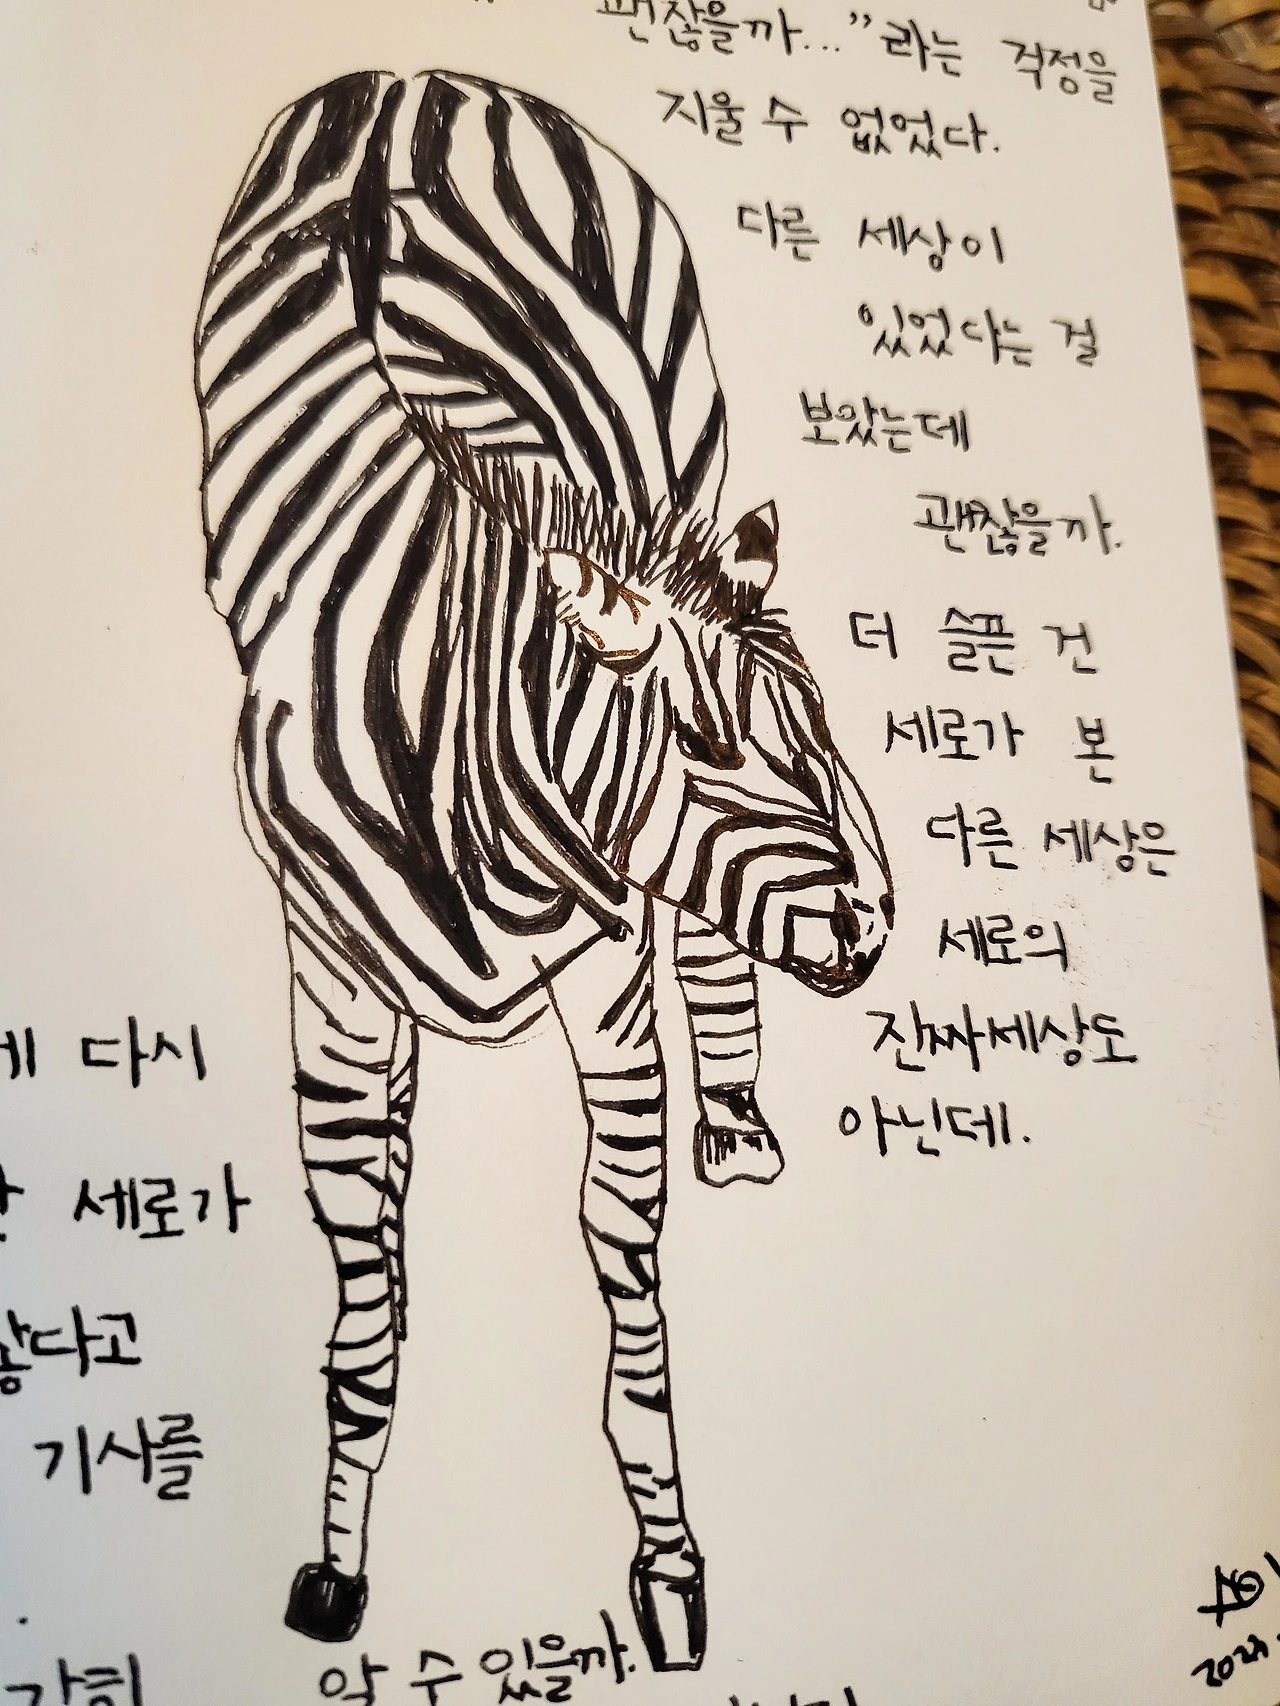 괜찮을까..."라는 걱정을
지울 수 없었다.
다른 세상이
있었다는 걸
보았는데
괜찮을까.
더 슬픈 건
세로가 본
다른 세상은
세로의
진짜세상도
아닌데.
다시
세로가
기사를
알 수 있을까.